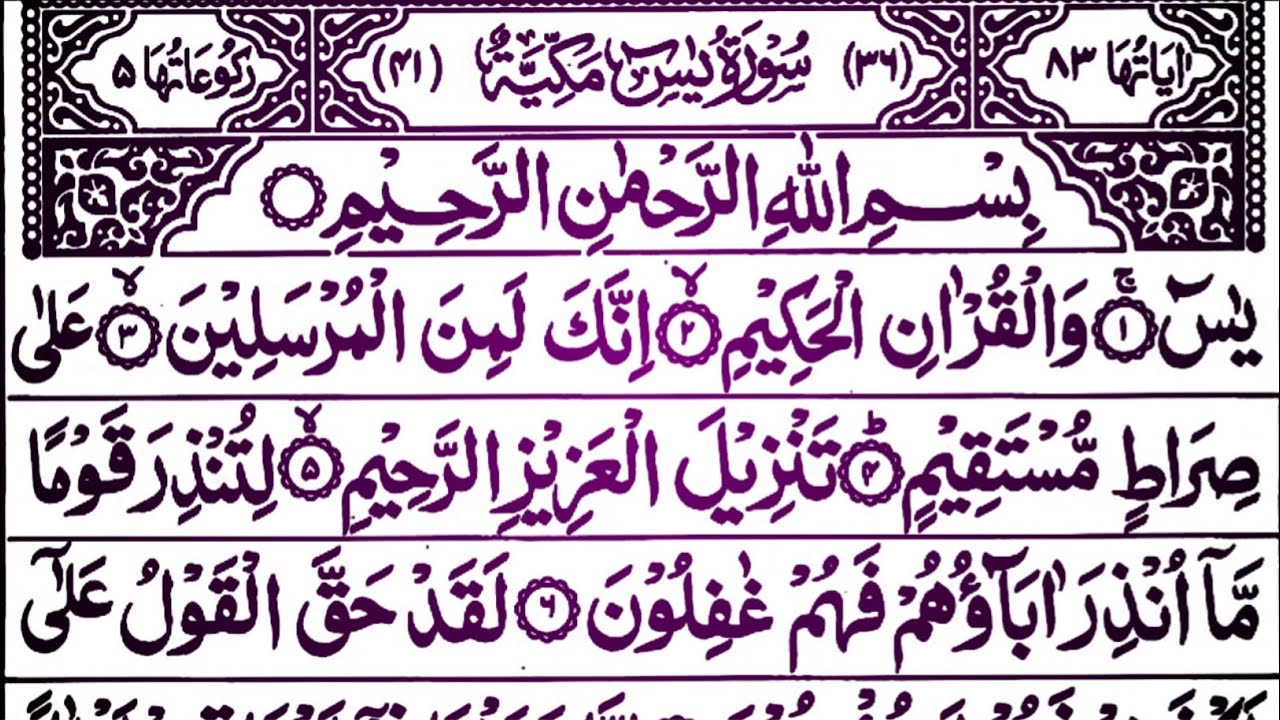 اٰيَاتُهَا ٨٣ (٣٦) سُوْرَةُ يٰسٓ مَكِّيَّةٌ (٤١) رُكُوْعَاتُهَا ٥
بِسْمِ اللّٰهِ الرَّحْمٰنِ الرَّحِيْمِ ۝
يٰسٓ ۝١ۚ وَالْقُرْاٰنِ الْحَكِيْمِ ۝٢ۙ اِنَّكَ لَمِنَ الْمُرْسَلِيْنَ ۝٣ۙ عَلٰى
صِرَاطٍ مُّسْتَقِيْمٍ ۝٤ؕ تَنْزِيْلَ الْعَزِيْزِ الرَّحِيْمِ ۝٥ۙ لِتُنْذِرَ قَوْمًا
مَّآ اُنْذِرَ اٰبَآؤُهُمْ فَهُمْ غٰفِلُوْنَ ۝٦ لَقَدْ حَقَّ الْقَوْلُ عَلٰٓى